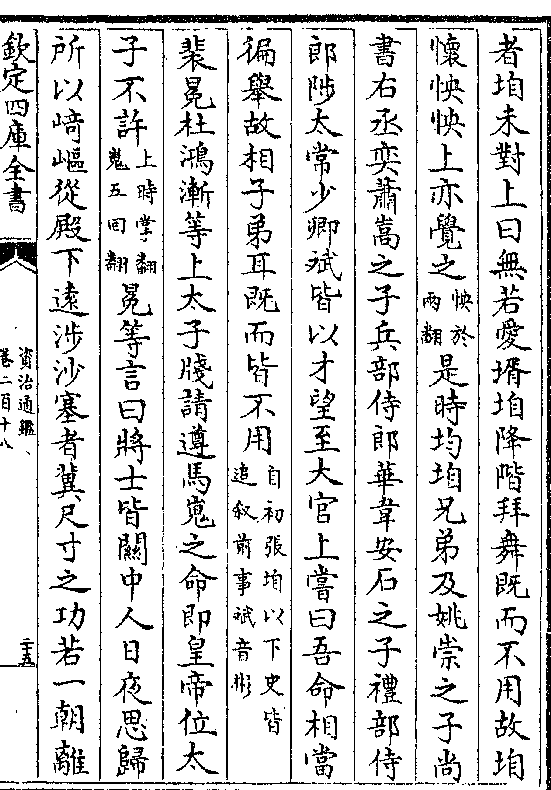 者垍未對上曰無若愛壻垍降階拜舞既而不用故垍
懷怏怏上亦覺之怏於兩翻是時均垍兄弟及姚崇之子尚
書右丞奕蕭嵩之子兵部侍郎華韋安石之子禮部侍
郎陟太常少卿斌皆以才望至大官上嘗曰吾命相當
徧舉故相子弟耳既而皆不用自初張垍以下史皆追叙前事斌音彬
裴冕杜鴻漸等上太子牋請遵馬嵬之命即皇帝位太
子不許上時掌翻嵬五回翻冕等言曰將士皆關中人日夜思歸
所以崎嶇從殿下遠涉沙塞者冀尺寸之功若一朝離
欽定四庫全書
資治通鑑
卷二百十八
二十五